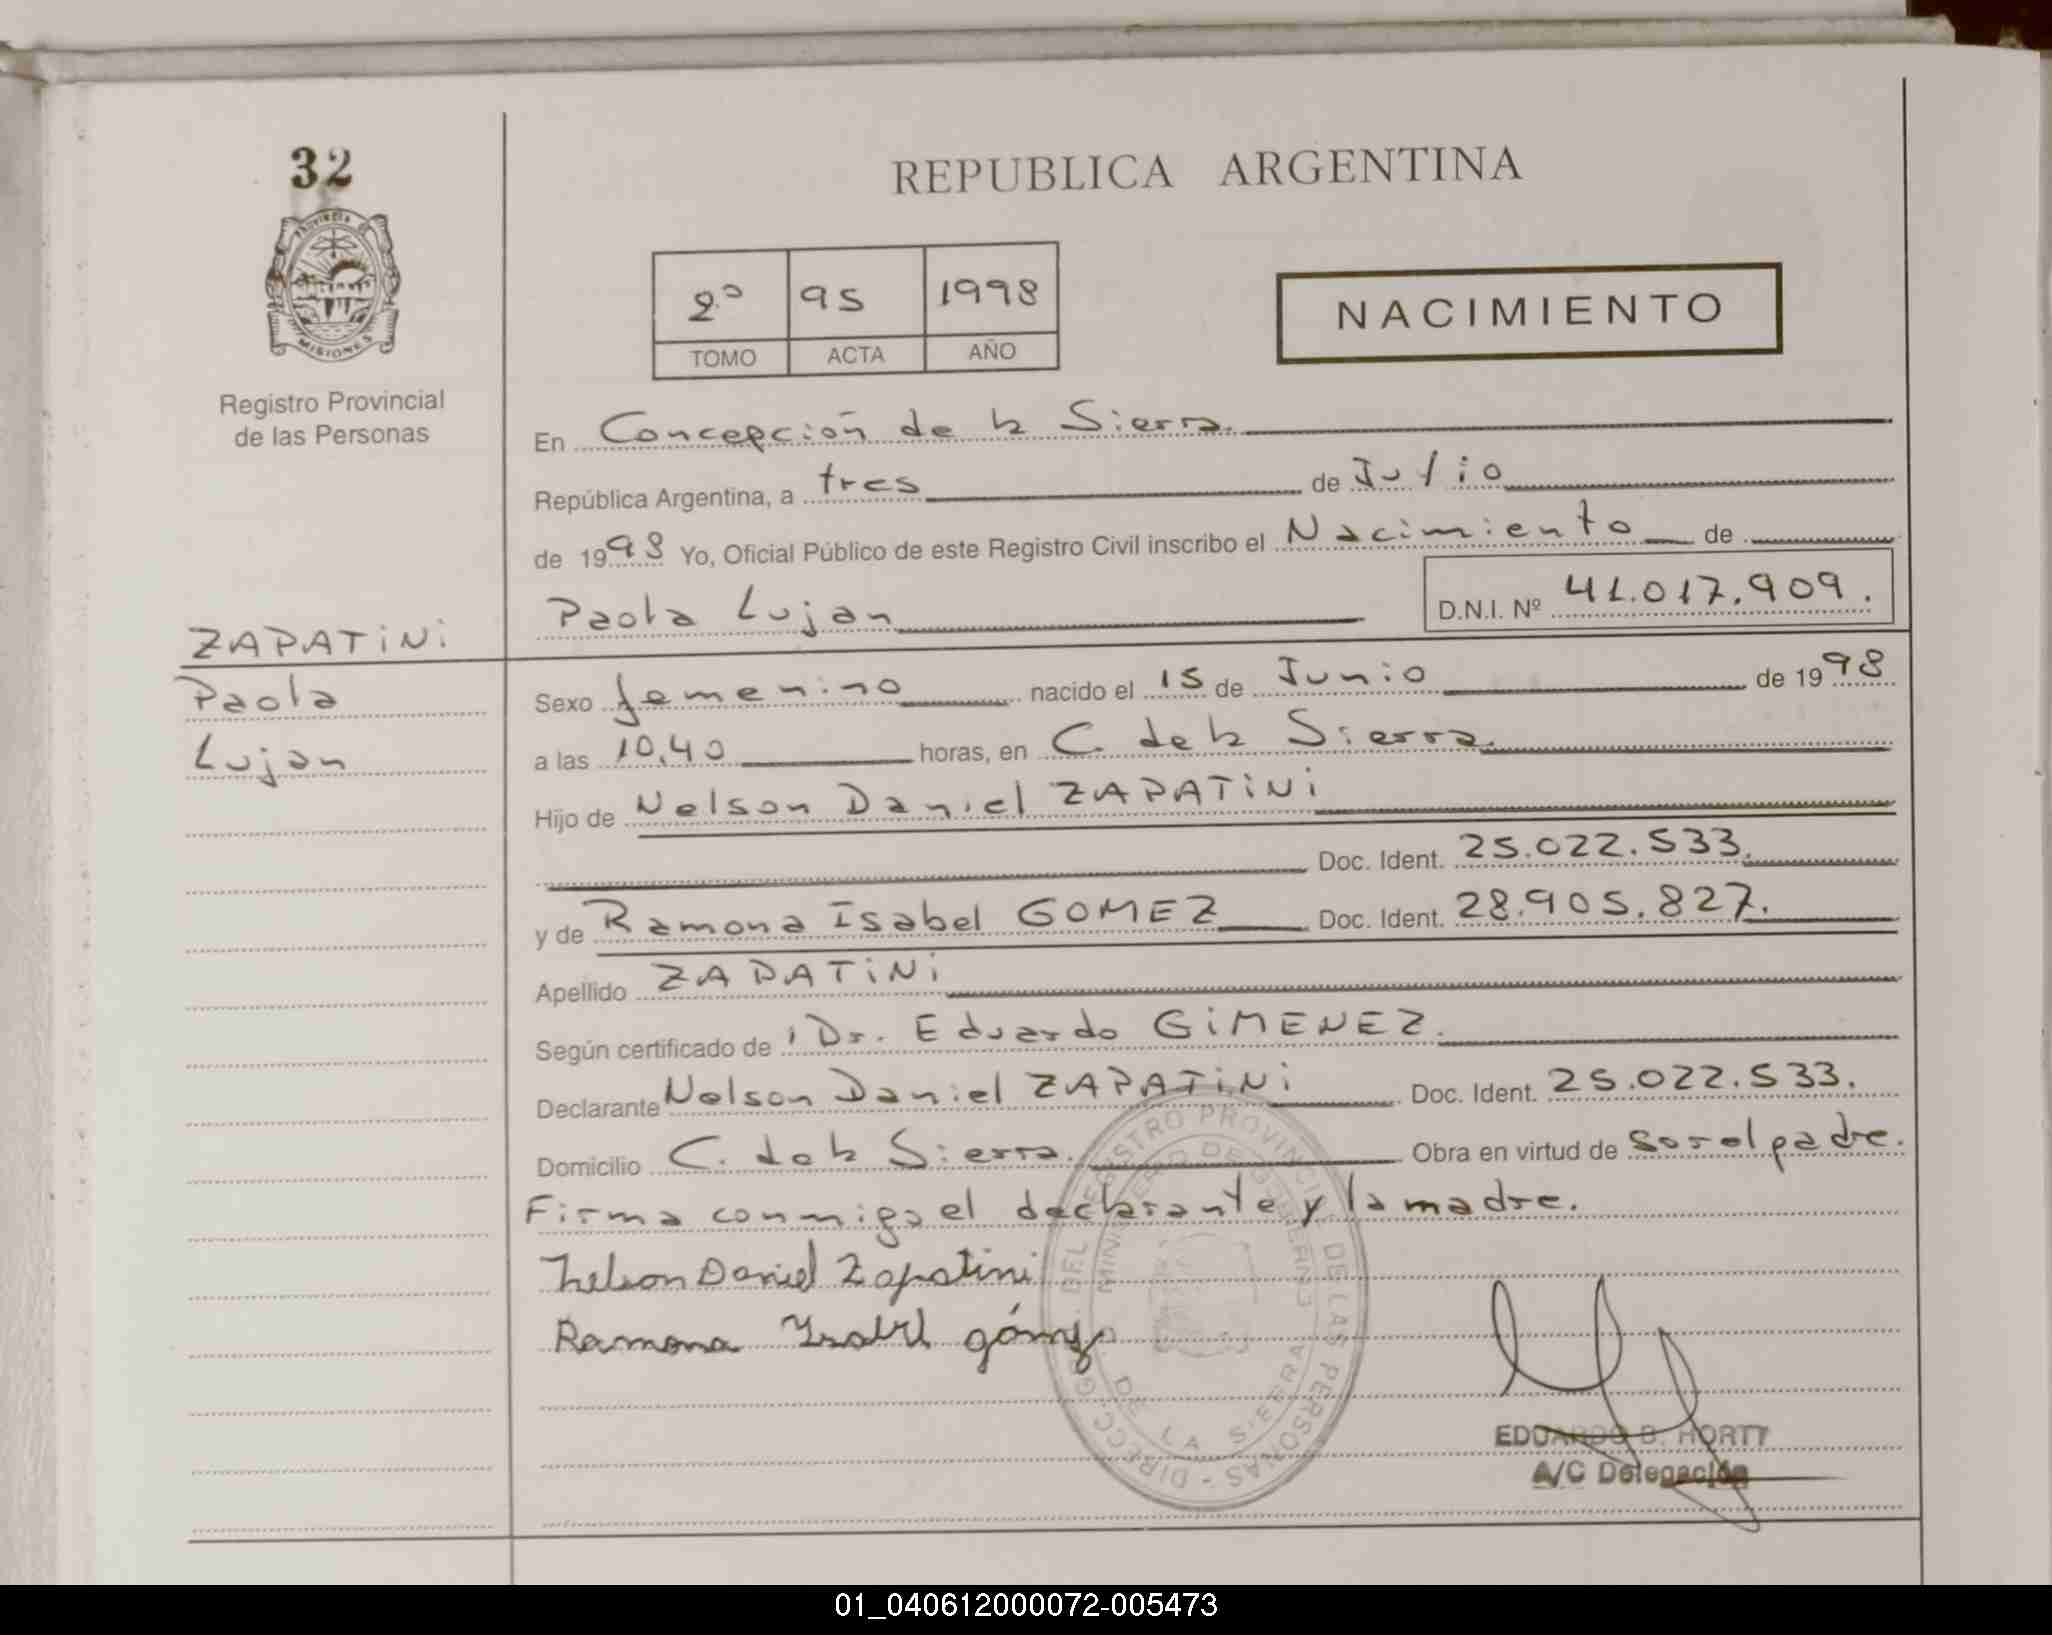 32
PROVINCIA DE
MISIONES
Registro Provincial
de las Personas
ZAPATiNi
Paola
Lujan
REPUBLICA ARGENTINA
2º 95 1998
TOMO ACTA AÑO
NACIMIENTO
En Concepción de la Sierra.
República Argentina, a tres de Julio
de 1998 Yo, Oficial Público de este Registro Civil inscribo el Nacimiento de
Paola Lujan D.N.I. Nº 41.017.909.
Sexo femenino nacido el 15 de Junio de 1998
a las 10.40 horas, en C. de la Sierra.
Hijo de Nelson Daniel ZAPATiNi
Doc. Ident. 25.022.533.
y de Ramona Isabel GOMEZ Doc. Ident. 28.905.827.
Apellido ZAPATiNi
Según certificado de Dr. Eduardo GiMENEZ.
Declarante Nelson Daniel ZAPATiNi Doc. Ident. 25.022.533.
Domicilio C. de la Sierra. Obra en virtud de ser el padre.
Firma conmigo el declarante y la madre.
Nelson Daniel Zapatini
Ramona Ysabel gómez
DIRECC. G DEL REGISTRO PROVINCIAL DE LAS PERSONAS
MINISTERIO DE GOBIERNO
DE LA SIERRA
EDUARDO B. HORTT
A/C Delegación
01_040612000072-005473